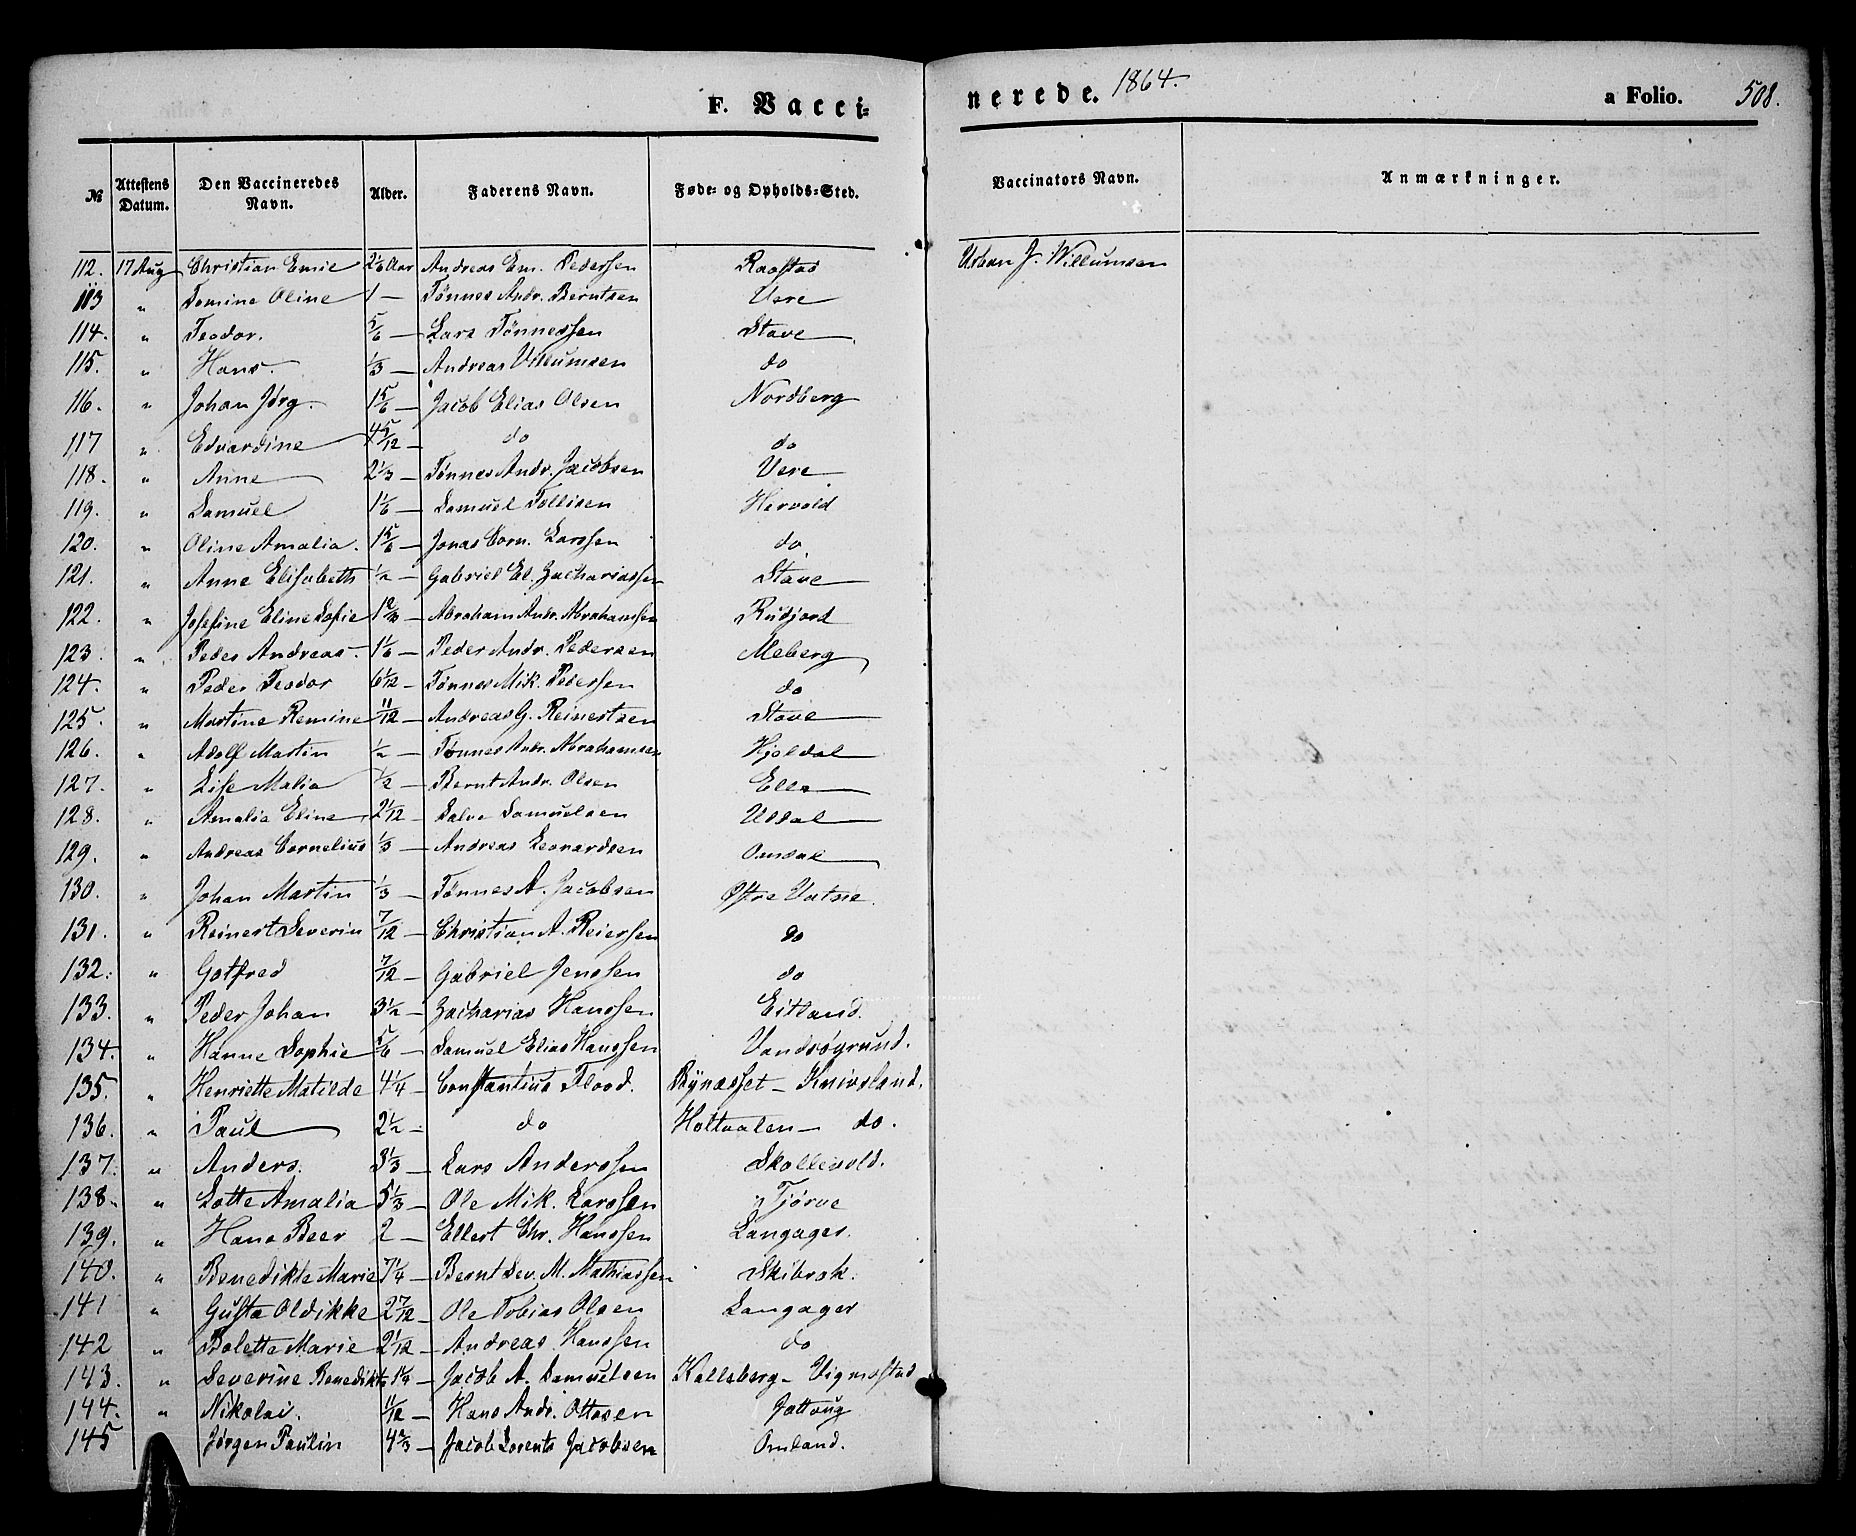 F. Vacci-
nerede. 1864.
a Folio. 508.
№ Attestens Datum. Den Vaccineredes Navn. Alder. Faderens Navn. Føde- og Opholds-Sted. Vaccinators Navn. Anmærkninger.
112. 17 Aug Christian Emil 2 1/6 Aar Andreas Em. Pedersen Raastad Urban J. Willumsen
113 " Tomine Oline 1 — Tønnes Andr. Berntsen Vere
114. " Teodor. 5/6 — Lars Tønnessen Stave
115. " Hans. 1/3 — Andreas Villumsen do
116. " Johan Jørg. 1 5/6 — Jacob Elias Olsen Nordberg
117 " Edvardine 4 5/12 — do do
118. " Anne 2 1/3 — Tønnes Andr. Jacobsen Vere
119. " Samuel 1 1/6 — Samuel Tollisen Hervold
120. " Oline Amalia. 1 5/6 — Jonas Corn. Larssen do
121. " Anne Elisabeth 1/2 — Gabriel El. Zachariassen Stave
122. " Josefine Eline Sofie 1 2/3 — Abraham Andr. Abrahamsen Rudjord
123. " Peder Andreas. 1 1/6 — Peder Andr. Pedersen Meberg
124. " Peder Teodor 6 1/12 — Tønnes Mik. Pedersen do
125. " Martine Remine 11/12 — Andreas G. Reinertsen Stave
126. " Adolf Martin 1/2 — Tønnes Andr. Abrahamsen Hjeldal
127. " Lise Malia 1/2 — Bernt Andr. Olsen Elle
128. " Amalia Eline 2 1/12 — Salve Samuelsen Uddal
129. " Andreas Cornelius 1/3 — Andreas Leonardsen Omdal
130. " Johan Martin 1/3 — Tønnes A. Jacobsen Østre Vatne.
131. " Reinert Severin 7/12 — Christian A. Reiersen do
132. " Gotfred 7/12 — Gabriel Jenssen do
133. " Peder Johan 3 1/2 — Zacharias Hanssen Eitland.
134. " Hanne Sophie 5/6 — Samuel Elias Hanssen Vandsøgrund.
135. " Henriette Matilde 4 1/4 — Constantius Flood. Bynæsset — Knivsland.
136. " Paul 2 1/2 — do Holtaalen — do.
137. " Anders. 3 1/3 — Lars Anderssen Skollevold.
138. " Lotte Amalia 5 1/3 — Ole Mik. Larssen Tjørve
139. " Hans Beer 2 — Ellert Chr. Hanssen Langager.
140. " Benedikte Marie 7 1/4 — Bernt Sev. M. Mathiassen Skibrak.
141 " Gusta Oldikke 2 7/12 — Ole Tobias Olsen Langager
142 " Bolette Marie 2 1/12 — Andreas Hanssen do
143. " Severine Benedikte 1 1/3 — Jacob A. Samuelsen Kallsberg — Vigmostad
144. " Nikolai. 11/12 — Hans Andr. Ottosen Jattaug
145 Jørgen Paulin 4 2/3 — Jacob Lorents Jacobsen Omland.